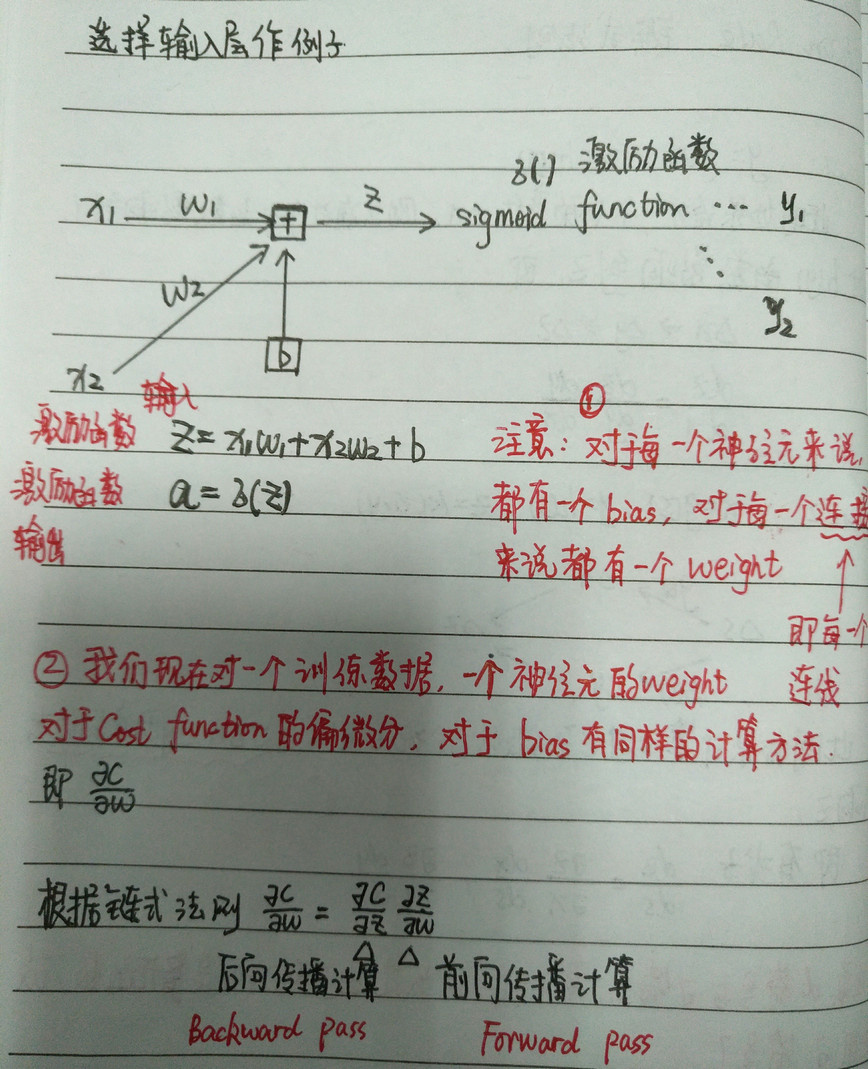 选择输入层作例子
δ() 激励函数
x₁ w₁ + z sigmoid function ⋯ y₁
⋮
w₂ y₂
b
x₂
激励函数 输入 z = x₁w₁ + x₂w₂ + b
激励函数 输出 a = δ(z)
①
注意：对于每一个神经元来说，
都有一个 bias，对于每一个连接
来说都有一个 weight
即每一个
连线
② 我们现在对一个训练数据，一个神经元的weight
对于Cost function 的偏微分，对于 bias 有同样的计算方法.
即 ∂C/∂w
根据链式法则 ∂C/∂w = ∂C/∂z ∂z/∂w
后向传播计算 △ △ 前向传播计算
Backward pass Forward pass